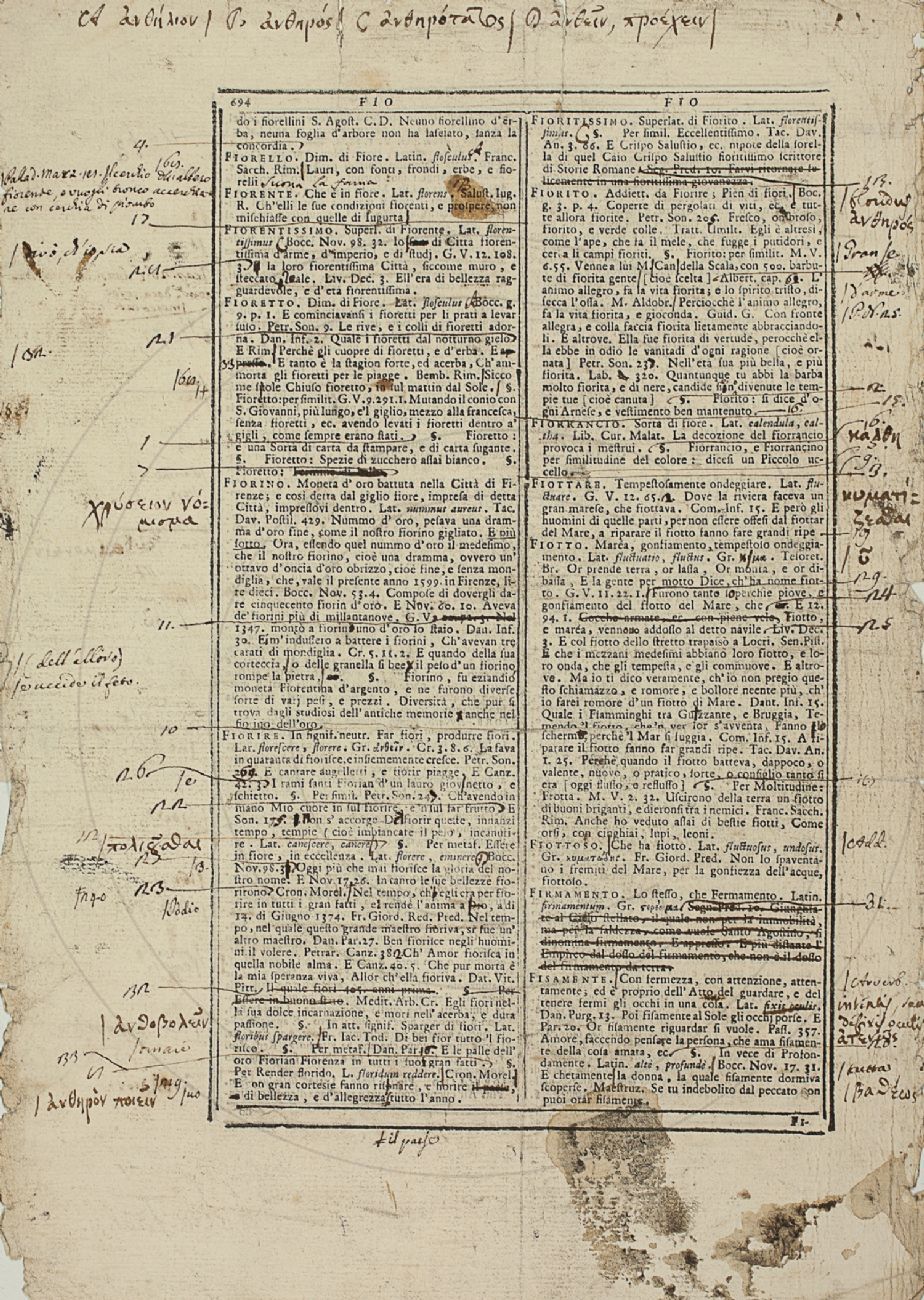 ἀνθήλιον / ἀνθηρός / ἀνθηρότατος / ἀνθεῖν, προέχειν /
694 FIO FIO
do i fiorellini S. Agost. C. D. Neuno fiorellino d'er-
ba, neuna foglia d'arbore non ha lasciato, sanza la
concordia.
FIORELLO. Dim. di Fiore. Latin. flosculus. Franc.
Sacch. Rim. Lauri, con fonti, frondi, erbe, e fio-
relli
FIORENTE. Che è in fiore. Lat. florens. Salust. Iug.
R. Ch'elli le sue condizioni fiorenti, e prospere non
mischiasse con quelle di Iugurta
FIORENTISSIMO. Superl. di Fiorente. Lat. floren-
tissimus Bocc. Nov. 98. 32. Io di Città fioren-
tissima d'arme, d'imperio, e di studj. G. V. 12. 108.
3. la loro fiorentissima Città, siccome muro, e
steccato leale. Liv. Dec. 3. Ell'era di bellezza rag-
guardevole, e d'età fiorentissima.
FIORETTO. Dim. di Fiore. Lat. flosculus Bocc. g.
9. p. 1. E cominciavansi i fioretti per li prati a levar
suso. Petr. Son. 9. Le rive, e i colli di fioretti ador-
na. Dan. Inf. 2. Quale i fioretti dal notturno gielo
E Rim Perchè gli cuopre di fioretti, e d'erba. E
E tanto è la stagion forte, ed acerba, Ch'am-
morta gli fioretti per le piagge. Bemb. Rim. Sicco-
me suole Chiuso fioretto, in sul mattin dal Sole. §.
Fioretto: per similit. G. V. 9. 291. 1. Mutando il conio con
S. Giovanni, più lungo, e'l giglio, mezzo alla francesca,
senza fioretti, ec. avendo levati i fioretti dentro a'
gigli, come sempre erano stati. §. Fioretto:
è una Sorta di carta da stampare, e di carta sugante.
§. Fioretto: Spezie di zucchero assai bianco. §.
Fioretto:
FIORINO. Moneta d'oro battuta nella Città di Fi-
renze; e così detta dal giglio fiore, impresa di detta
Città, impressovi dentro. Lat. nummus aureus. Tac.
Dav. Postil. 429. Nummo d'oro, pesava una dram-
ma d'oro fine, come il nostro fiorino gigliato. E più
sotto. Ora, essendo quel nummo d'oro il medesimo,
che il nostro fiorino, cioè una dramma, ovvero un'
ottavo d'oncia d'oro obrizzo, cioè fine, e senza mon-
diglia, che, vale il presente anno 1599. in Firenze, li-
re dieci. Bocc. Nov. 53. 4. Compose di dovergli da-
re cinquecento fiorin d'oro. E Nov. 80. 10. Aveva
de' fiorini più di millantanove. G. V.
1347. montò a fiorino uno d'oro lo staio. Dan. Inf.
30. E m'indussero a battere i fiorini, Ch'avevan tre
carati di mondiglia. Cr. 5. 11. 2. E quando della sua
corteccia, o delle granella si bee il peso d'un fiorino
rompe la pietra, §. Fiorino, fu eziandio
moneta Fiorentina d'argento, e ne furono diverse
sorte di varj pesi, e prezzi. Diversità, che pur si
trova dagli studiosi dell'antiche memorie anche nel
fiorino dell'oro.
FIORIRE. In signif. neutr. Far fiori, produrre fiori.
Lat. florescere, florere. Gr. ἀνθεῖν. Cr. 3. 8. 6. La fava
in quaranta dì fiorisce, e insiememente cresce. Petr. Son.
E cantare augelletti, e fiorir piagge, E Canz.
42. 3. I rami santi Fiorian d'un lauro giovinetto, e
schietto. §. Per simil. Petr. Son. 24. Ch'avendo in
mano Mio cuore in sul fiorire, e 'n sul far frutto
Son. 175. non s'accorge Di fiorir queste, innanzi
tempo, tempie (cioè imbiancate il pelo, incanuti-
re. Lat. canescere, canere) §. Per metaf. Essere
in fiore, in eccellenza. Lat. florere, eminere Bocc.
Nov. 98. 3. Oggi più che mai fiorisce la gloria del no-
stro nome. E Nov. 17. 26. In tanto le sue bellezze fio-
rirono Cron. Morel. Nel tempo, che egli era per fio-
rire in tutti i gran fatti, e' rendè l'anima a Dio, a dì
14. di Giugno 1374. Fr. Giord. Red. Pred. Nel tem-
po, nel quale questo grande maestro fioriva, si fue un'
altro maestro. Dan. Par. 27. Ben fiorisce negli huomi-
ni il volere. Petrar. Canz. 38. 2. Ch' Amor fiorisca in
quella nobile alma. E Canz. 40. 5. Che pur morta è
la mia speranza viva, Allor ch'ella fioriva. Dat. Vit.
Pitt. Il quale fiorì 405. anni prima. §. Per
Essere in buono stato. Medit. Arb. Cr. Egli fiorì nel-
la sua dolce incarnazione, e morì nell'acerba, e dura
passione. §. In att. signif. Sparger di fiori. Lat.
floribus spargere. Fr. Iac. Tod. Di bei fior tutto 'l fio-
risco. §. Per metaf. Dan. Par. 16. E le palle dell'
oro Fiorian Fiorenza in tutti i suoi gran fatti §.
Per Render florido, L. floridum reddere. Cron. Morel
E con gran cortesie fanno risonare, e fiorire
di bellezza, e d'allegrezza tutto l'anno.
FIORITISSIMO. Superlat. di Fiorito. Lat. florentis-
simus. §. Per simil. Eccellentissimo. Tac. Dav.
An. 3. 86. E Crispo Salustio, ec. nipote della sorel-
la di quel Caio Crispo Salustio fioritissimo scrittore
di Storie Romane. Seg. Pred. 10. Parvi ritornare fe-
licemente in una fioritissima giovanezza.
FIORITO. Addiett. da Fiorire: Pien di fiori. Bocc.
g. 3. p. 4. Coperte di pergolati di viti, ec. e tut-
te allora fiorite. Petr. Son. 205. Fresco, ombroso,
fiorito, e verde colle. Tratt. Umilt. Egli è altresì,
come l'ape, che fa il mele, che fugge i putidori, e
cerca li campi fioriti. §. Fiorito: per similit. M. V.
6. 55. Venne a lui M. Can della Scala, con 500. barbu-
te di fiorita gente [cioè scelta] Albert. cap. 63. L'
animo allegro, fa la vita fiorita; e lo spirito tristo, di-
secca l'ossa. M. Aldobr. Perciocchè l'animo allegro,
fa la vita fiorita, e gioconda. Guid. G. Con fronte
allegra, e colla faccia fiorita lietamente abbracciando-
li. E altrove. Ella sue fiorita di vertude, perocchè el-
la ebbe in odio le vanitadi d'ogni ragione [cioè or-
nata] Petr. Son. 237. Nell'età sua più bella, e più
fiorita. Lab. 320. Quantunque tu abbi la barba
molto fiorita, e di nere, candide sien divenute le tem-
pie tue [cioè canuta] §. Fiorito: si dice d'o-
gni Arnese, e vestimento ben mantenuto.
FIORRANCIO. Sorta di fiore. Lat. calendula, cal-
tha. Lib. Cur. Malat. La decozione del fiorrancio
provoca i mestrui. §. Fiorrancio, e Fiorrancino
per similitudine del colore: dicesi un Piccolo uc-
cello.
FIOTTARE. Tempestosamente ondeggiare. Lat. flu-
ctuare. G. V. 12. 65. 2. Dove la riviera faceva un
gran marese, che fiottava. Com. Inf. 15. E però gli
huomini di quelle parti, per non essere offesi dal fiottar
del Mare, a riparare il fiotto fanno fare grandi ripe
FIOTTO. Marèa, gonfiamento, tempestoso ondeggia-
mento. Lat. fluctuatio, fluctus. Gr. κῦμα. Tesoret.
Br. Or prende terra, or lassa, Or monta, e or di-
bassa, E la gente per motto Dice, ch'ha nome fiot-
to. G. V. 11. 22. 1. Furono tante soperchie piove, e
gonfiamento del fiotto del Mare, che E 12.
94. 1. Cocche armate, ec. con piene vele, Fiotto,
e marèa, vennono addosso al detto navile. Liv. Dec.
3. E col fiotto dello stretto trapassò a Locri. Sen. Pist.
E che i mezzani medesimi abbiano loro fiotto, e lo-
ro onda, che gli tempesta, e gli commuove. E altro-
ve. Ma io ti dico veramente, ch'io non pregio que-
sto schiamazzo, e romore, e bollore neente più, ch'
io farei romore d'un fiotto di Mare. Dant. Inf. 15.
Quale i Fiamminghi tra Guzzante, e Bruggia, Te-
mendo 'l fiotto, che 'n ver lor s'avventa, Fanno lo
schermo, perchè 'l Mar si fuggia. Com. Inf. 15. A ri-
parare il fiotto fanno far grandi ripe. Tac. Dav. An.
1. 25. Perchè quando il fiotto batteva, dappoco, o
valente, nuovo, o pratico, forte, o consiglio tanto si
era [oggi flusso, o reflusso] §. Per Moltitudine:
Frotta. M. V. 2. 32. Uscirono della terra un fiotto
di buoni briganti, e difensonsi tra i nemici. Franc. Sacch.
Rim. Anche ho veduto assai di bestie fiotti, Come
orsi, con cinghiai, lupi, leoni.
FIOTTOSO. Che ha fiotto. Lat. fluctuosus, undosus.
Gr. κυματώδης. Fr. Giord. Pred. Non lo spaventa-
no i fremiti del Mare, per la gonfiezza dell'acque,
fiottoso.
FIRMAMENTO. Lo stesso, che Fermamento. Latin.
firmamentum. Gr. Segn. Pred. 10. Giungne-
te al Cielo stellato, il quale non per la immobilità,
ma per la saldezza, come vuole Santo Agostino, si
dinomina firmamento. E appresso. E più distante l'
Empireo dal dosso del firmamento, che non è il dosso
del firmamento da terra.
FISAMENTE. Con fermezza, con attenzione, atten-
tamente; ed è proprio dell'Atto del guardare, e del
tenere fermi gli occhi in una cosa. Lat. fixis oculis.
Dan. Purg. 13. Poi fisamente al Sole gli occhi porse. E
Par. 20. Or fisamente riguardar si vuole. Pass. 357.
Amore, faccendo pensare la persona, che ama fisamen-
te della cosa amata, ec. §. In vece di Profon-
damente. Latin. altè, profundè. Bocc. Nov. 17. 31.
E chetamente la donna, la quale fisamente dormiva
scoperse. Maestruz. Se tu indebolito dal peccato non
puoi orar fisamente.
FI-
4.
17
21
1
7
χρύσειον νό-
μισμα
11
/ dell'alloro
/ uccide il feto.
10
26
22
23
32
/ ἀνθοβολεῖν
33
/ ἀνθηρὸν ποιεῖν
13.
ἀνθηρός
12
15.
16.
κάλθη
κυματί-
ζεσθαι
19
29
24
25
/ Add.
31
/ Avverb.
ἀτενῶς
/ il paese